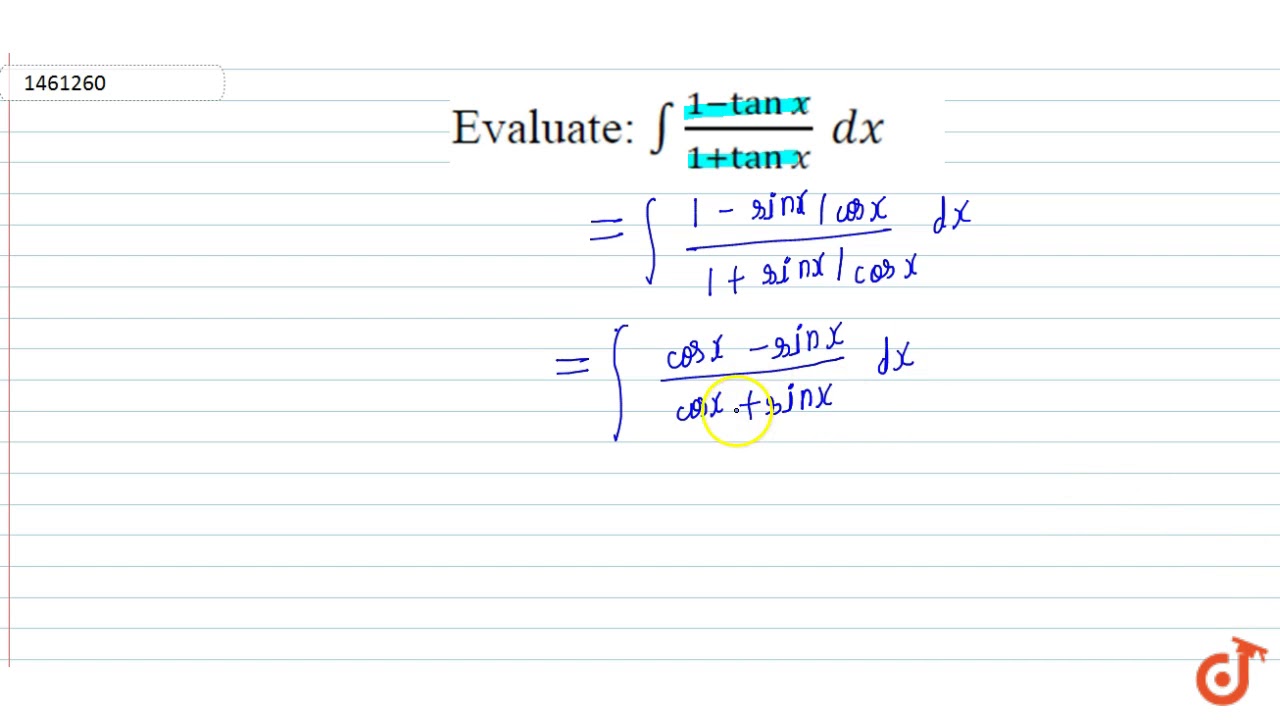 1461260
Evaluate: ∫ (1−tan x)/(1+tan x) dx
= ∫ (1 - sinx/cosx)/(1 + sinx/cosx) dx
= ∫ (cosx - sinx)/(cosx + sinx) dx